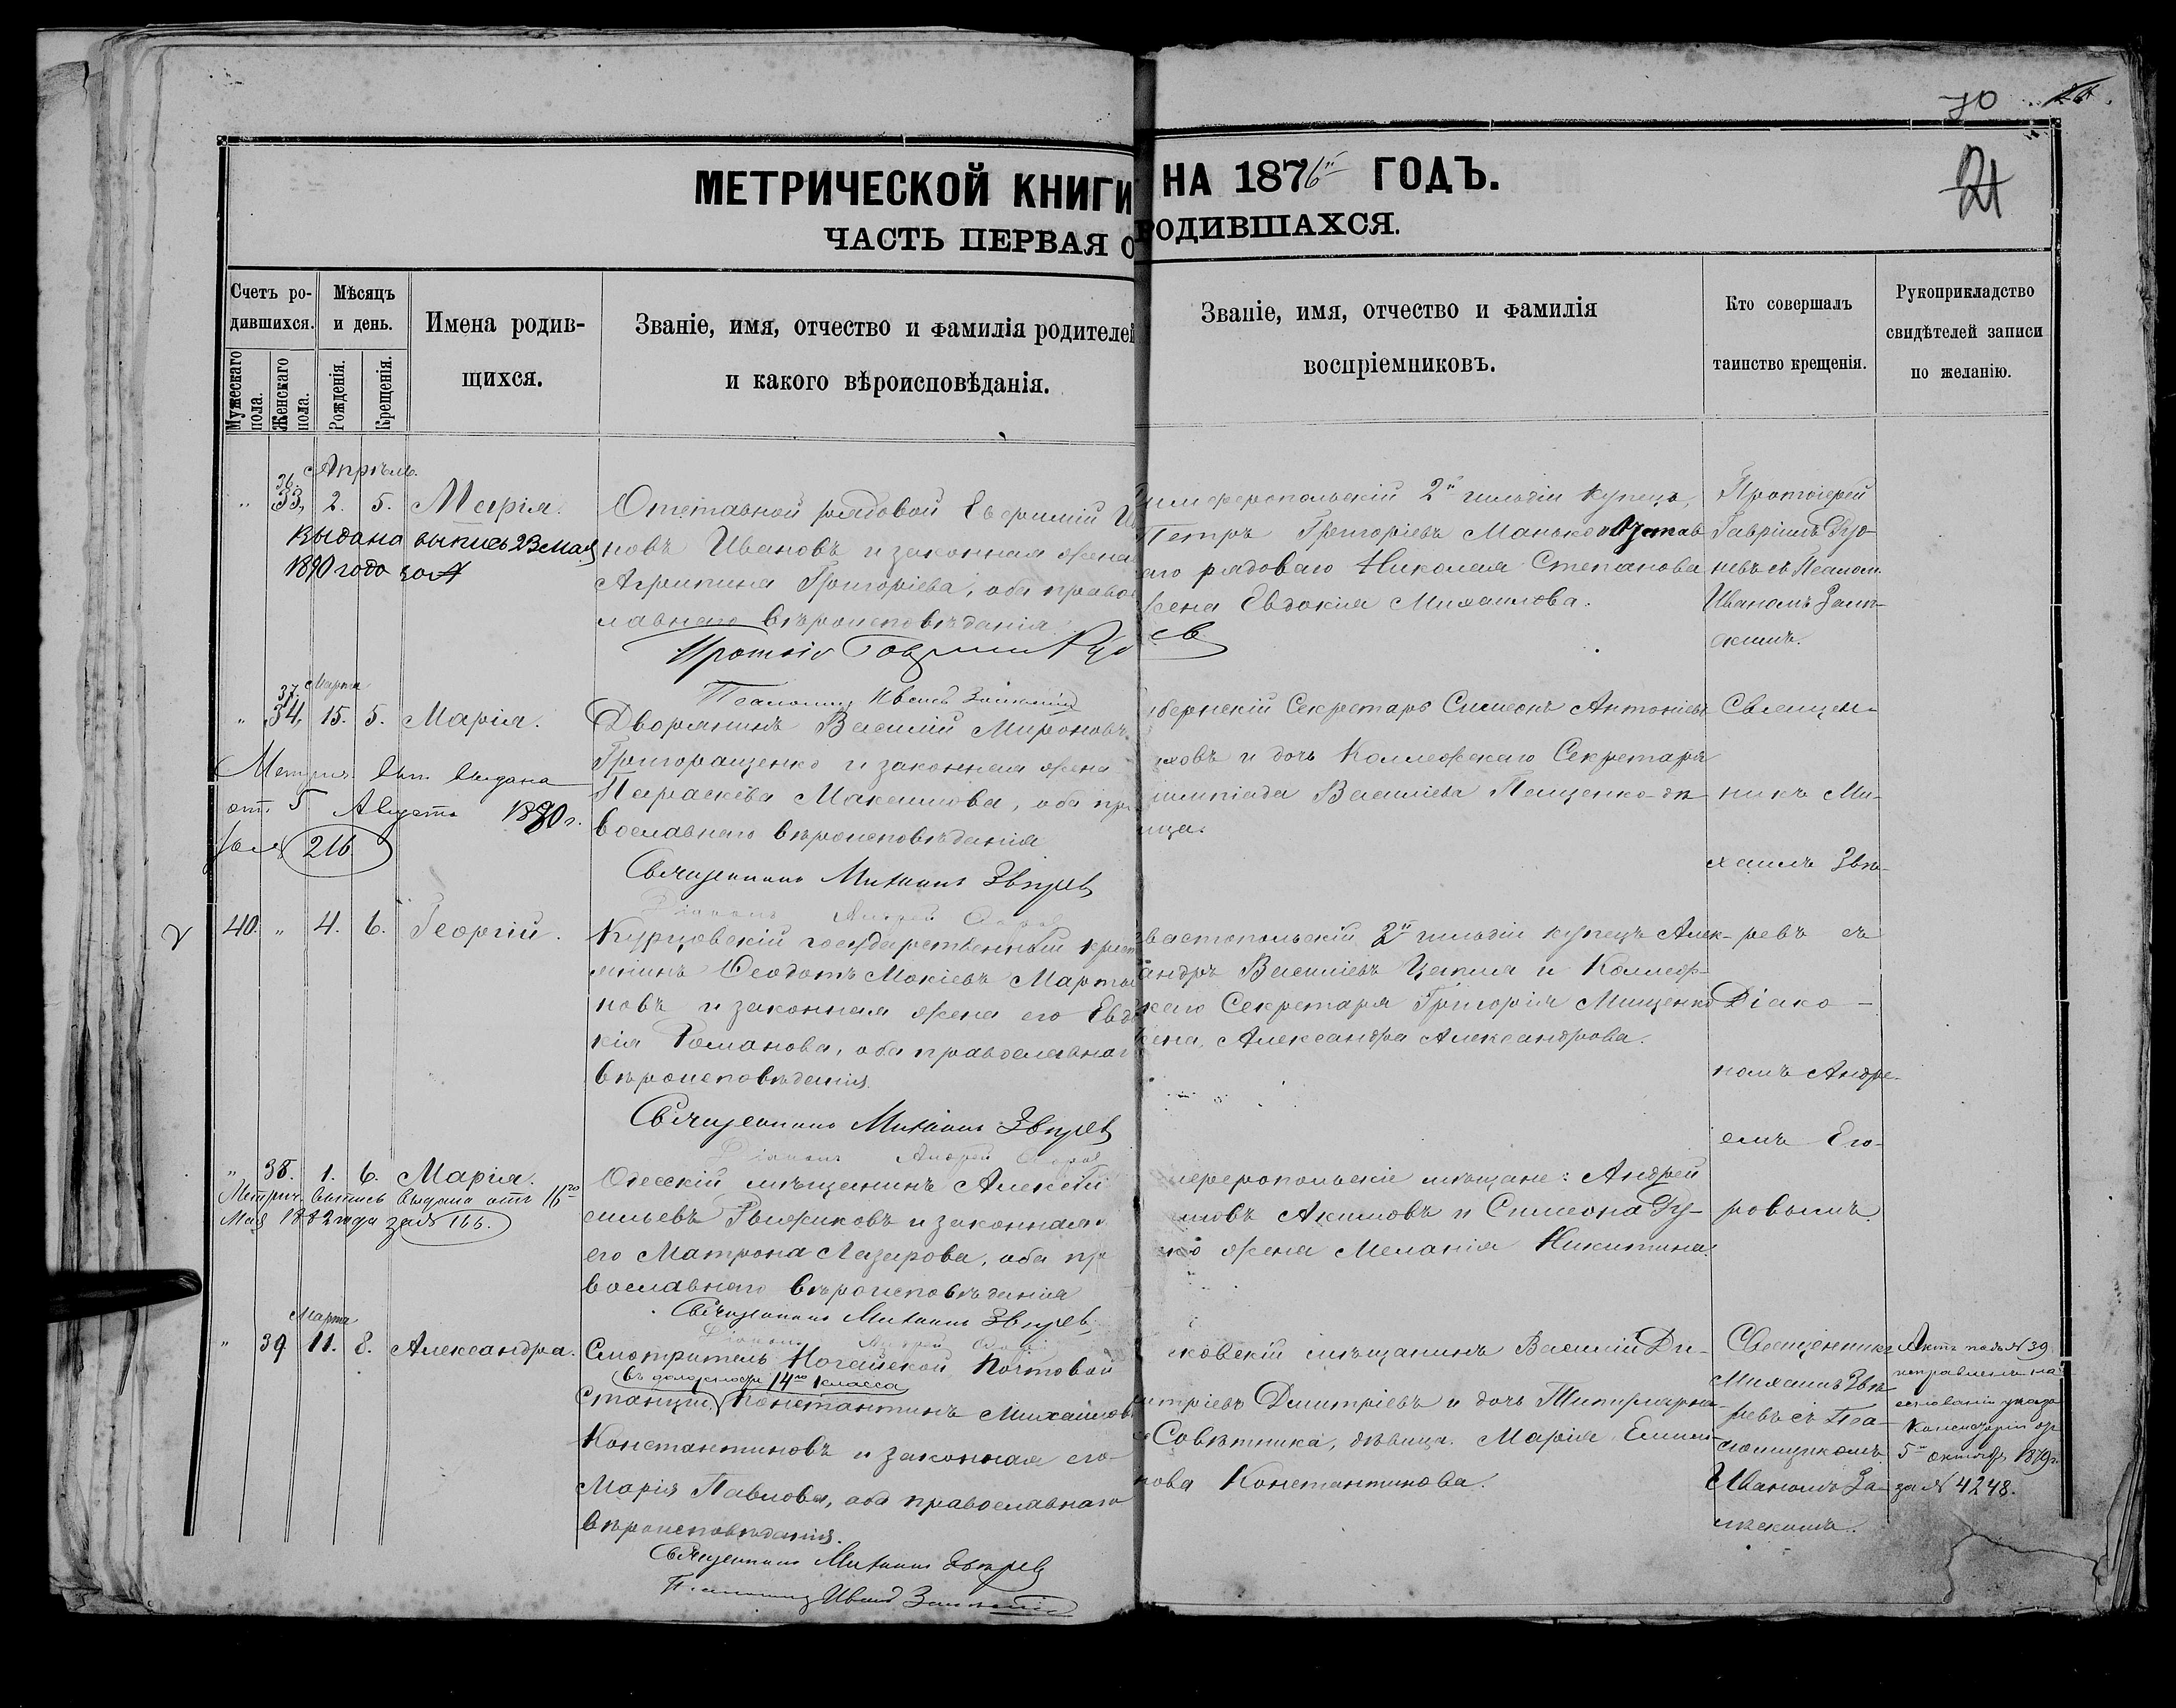 70
21
МЕТРИЧЕСКОЙ КНИГИ НА 1876й ГОДЪ.
ЧАСТЬ ПЕРВАЯ О РОДИВШАХСЯ.
Счетъ ро-
дившихся.
Мужескаго
пола.
Женскаго
пола.
Мѣсяцъ
и день.
Рожденія.
Крещенія.
Имена родив-
шихся.
Званіе, имя, отчество и фамилія родителей
и какого вѣроисповѣданія.
Званіе, имя, отчество и фамилія
воспріемниковъ.
Кто совершалъ
таинство крещенія.
Рукоприкладство
свидѣтелей записи
по желанію.
Апрѣль.
36.
" 33. 2. 5. Марія.
Выдана выпись 23 мая
1890 года за №
Отставной рядовой Евфимій
новъ Ивановъ и законная жена
Агрипина Григоріева, оба право
лавнаго вѣроисповѣданія.
имферопольскій 2й гильдіи купецъ,
Петръ Григоріевъ Манько
аго рядоваго Николая Степанова
жена Евдокія Михайлова.
Протоіерей
Гавріилъ
Иваномъ
37. Марта
" 34. 15. 5. Марія.
Метрич. вып. выдана
от. 5 Августа 1880 г.
за № 216
Дворянинъ Василій Мироновъ
Григоращенко и законная жена
Параскева Максимова, оба пра
вославнаго вѣроисповѣданія
Священникъ Михаилъ Звѣревъ
бернскій Секретарь Симеонъ Антоніевъ
новъ и дочь Коллежскаго Секретаря
импіада Васильева Пещенко-дѣ
ица.
Священ-
никъ Ми-
хаилъ Звѣ-
40. " 4. 6. Георгій.
Курцовскій государственный крест
янинъ Ѳеодотъ Мокіевъ Марты
новъ и законная жена его Евдо
кія Романова, оба православнаг
вѣроисповѣданія.
Священникъ Михаилъ Звѣревъ
Діаконъ Андрей
вастопольскій 2й гильдіи купецъ Алек-
андръ Василіевъ Цапля и Коллеж-
каго Секретаря Григорія Мищенко
жена, Александра Александрова.
ревъ съ
Діако-
номъ Андре-
емъ Его-
" 38. 1. 6. Марія.
Метрич. выпись выдана отъ 16го
Мая 1882 года за № 166.
Одесскій мѣщанинъ Алексій
сильевъ Рыжиковъ и законная
его Матрона Лазарова, оба пр
вославнаго вѣроисповѣданія
Священникъ Михаилъ Звѣревъ
Діаконъ Андрей
мферопольскіе мѣщане: Андрей
имовъ Акимовъ и Симеона Гу-
ко жена Меланія Никитина.
ровымъ.
Марта
" 39 11. 8. Александра.
Смотритель Ногайской Почтовой
въ должности 14го класса
Станціи, Константинъ Михайлов
Константиновъ и законная его
Марія Павлова, оба православнаго
вѣроисповѣданія.
Священникъ Михаилъ Звѣревъ
Псаломщ. Иванъ
ковскій мѣщанинъ Василій Ди-
итріевъ Дмитріевъ и дочь Титулярна-
Совѣтника, дѣвица Марія
нова Константинова.
Священникъ
Михаилъ Звѣ-
ревъ съ Пса-
ломщикомъ
Иваномъ За-
Актъ подъ № 39
исправленъ на
основаніи указа
Консисторіи отъ
5го октября 1879 г.
за № 4248.